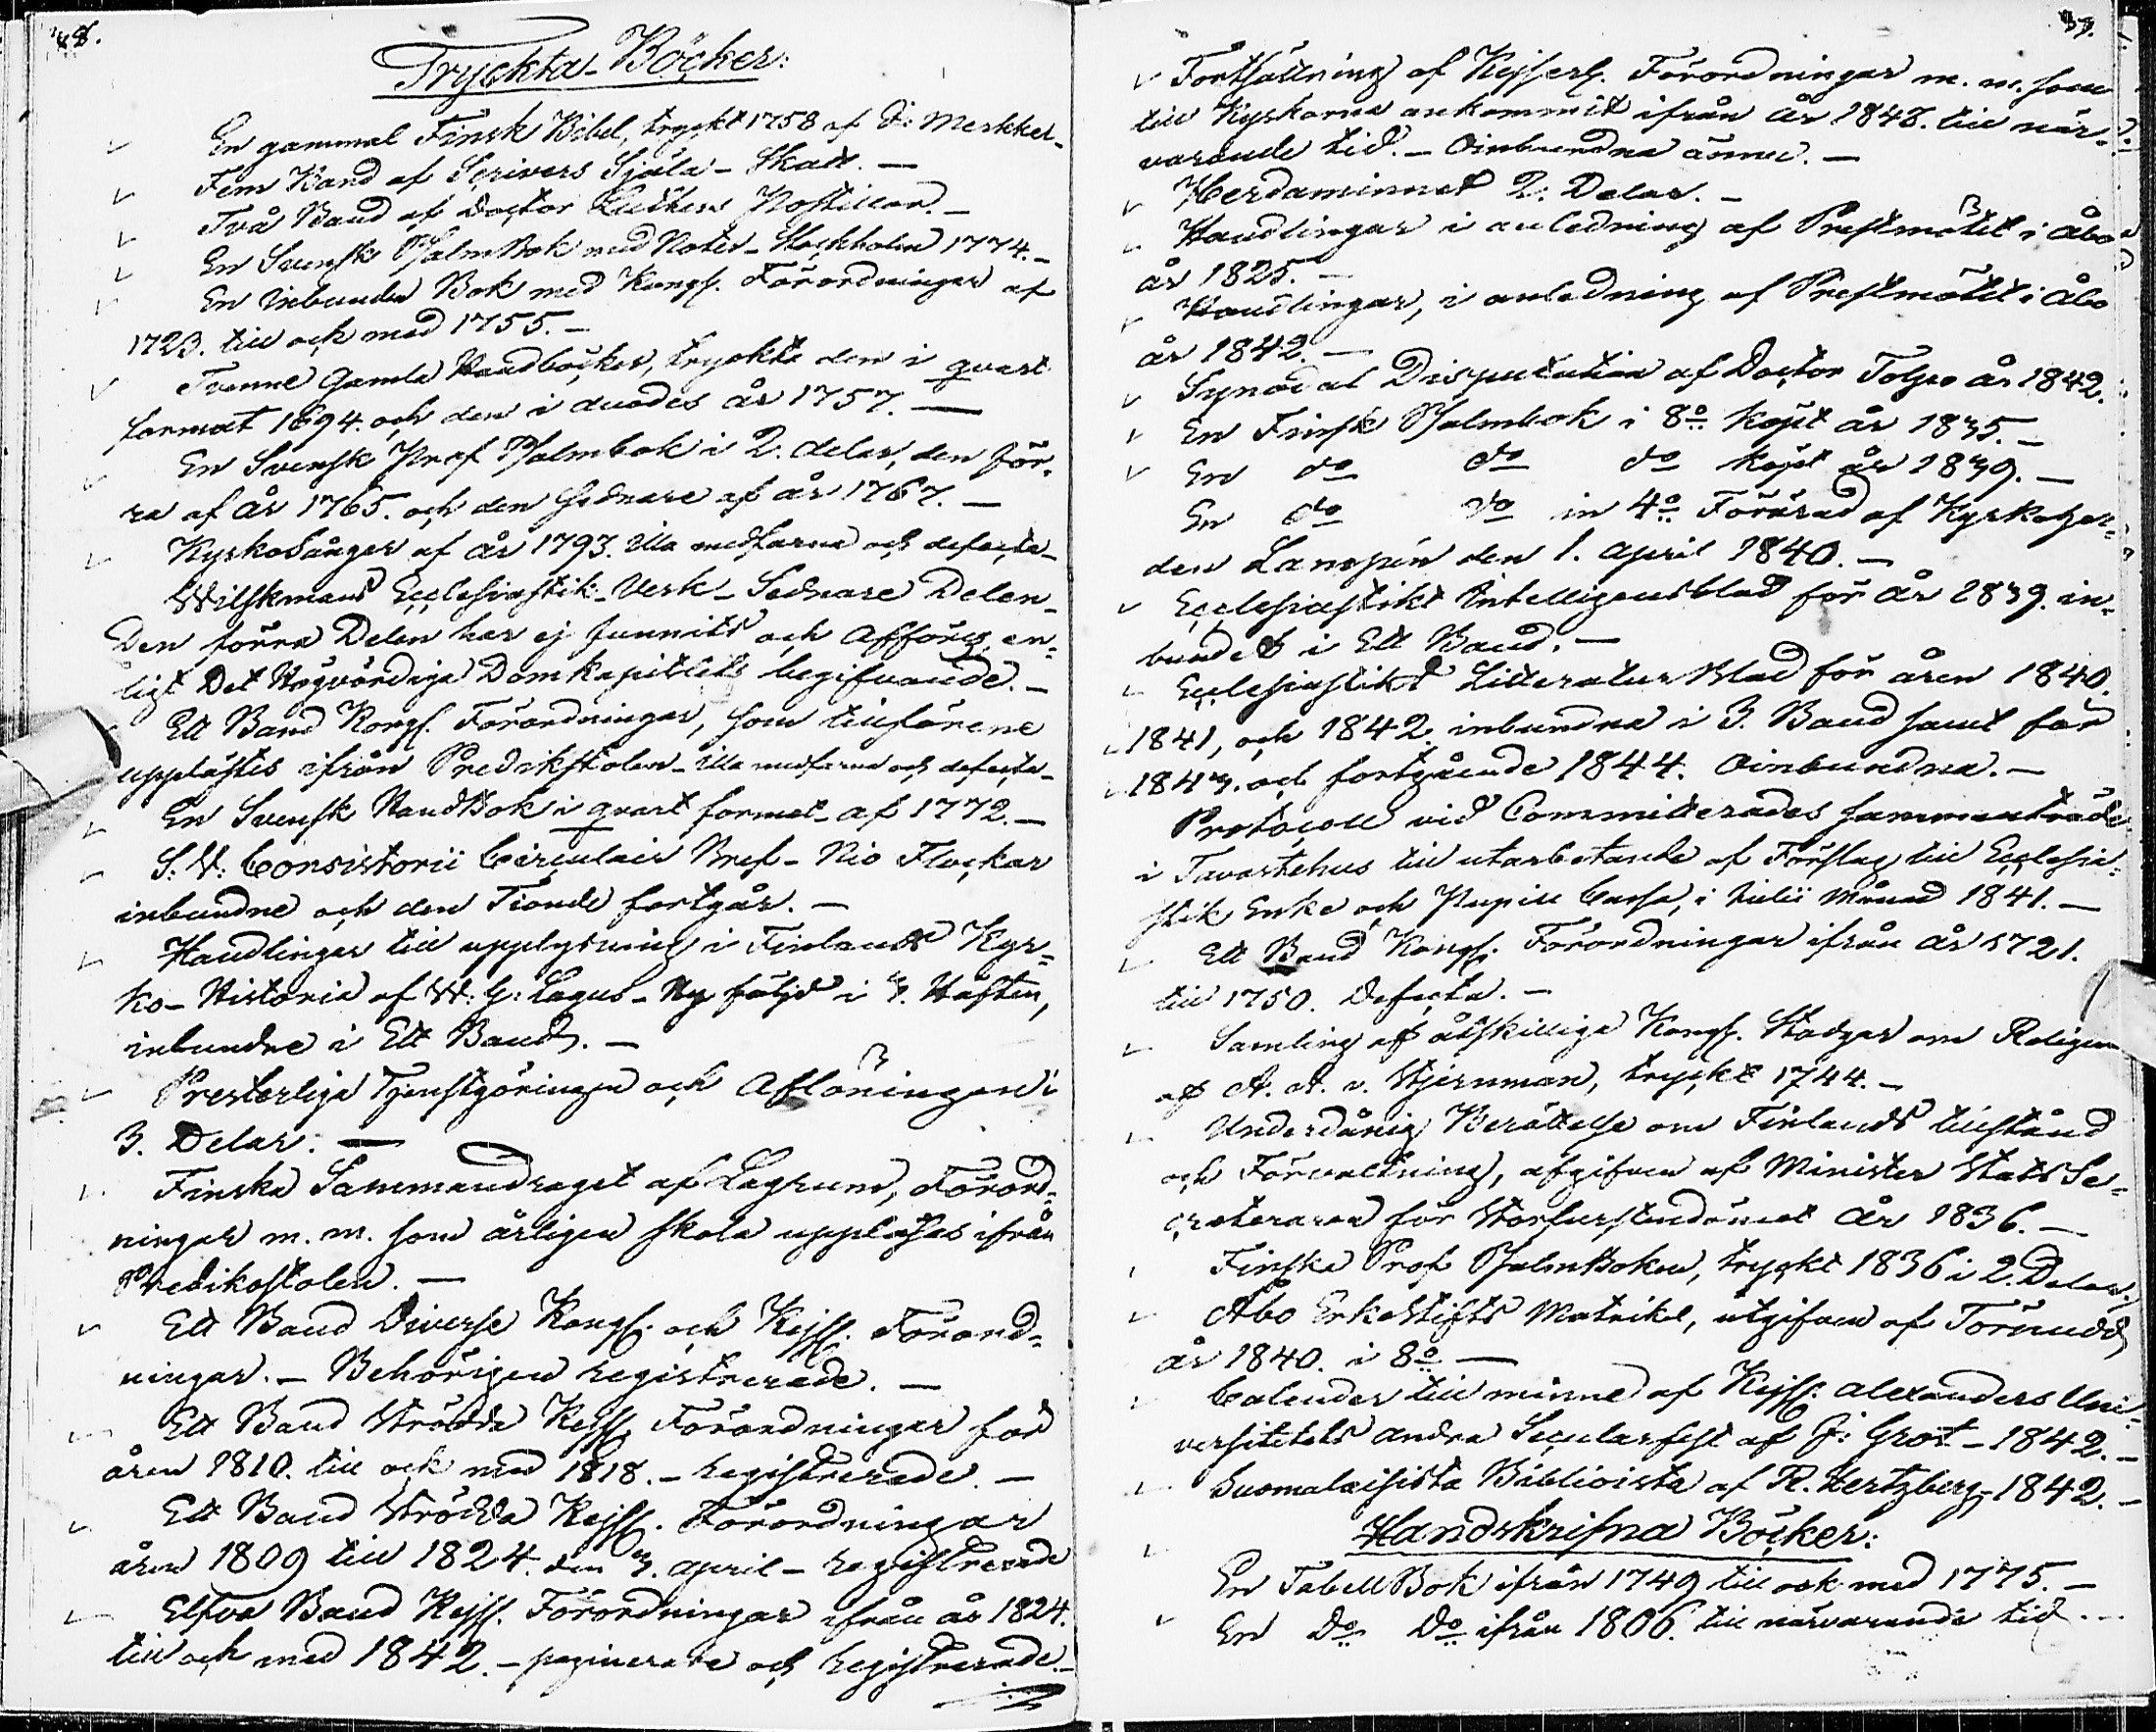 Tryckta Böcker:
En gammal Finsk Bibel, tryckt 1758 af J: Merkkel_
Fem Band af Scrivers Själa-Skatt. —
Två Band af Doctor Luthers Postillor. —
En Svensk PsalmBok med Noter – Stockholm 1774. –
En inbunden Bok med Kongl. Förordningar af
1723. till och med 1755. –
Tvenne Gamla Handböcker, tryckte den i qvart
format 1694. och den i duodes år 1757. —
En Svensk Prof Psalmbok i 2. delar, den för-
ra af år 1765. och den sednare af år 1767. —
KyrkoSånger af år 1793. illa medfarna och defecta –
Wilskmans Ecclesiastik-Verk – Sednare Delen –
Den förra Delen har ej funnits och afföres, en-
ligt Det Högvördiga Domkapitlets begifvande. –
Ett Band Kongl. Förordningar, som tillförene
upplästes ifrån Predikstolen – illa medfarna och defecta –
En Svensk HandBok i qvart format – af 1772. –
S: V: Consistorii Circulair Bref – Nio Flockar
inbundne och den Tionde fortgår. –
Handlingar till upplysning i Finlands Kyr-
ko-Historia af W: G: Lagus – Ny följd i 3. Häften,
inbundne i Ett Band. –
Presterliga Tjenstgöringen och Aflöningen i
3. Delar: —
Finska Sammandraget af Lagrum, Förord-
ningar m. m. som årligen skola uppläsas ifrån
Predikostolen. —
Ett Band Diverse Kongl. och Kejsl. Förord-
ningar. – Behörigen registrerade. –
Ett Band Strödda Kejsl. Förordningar för
åren 1810. till och med 1818. – registrerade. –
Ett Band Strödda Kejsl. Förordningar
åren 1809 till 1824. den 3. April – registrerade
Elfva Band Kejsl. Förordningar ifrån år 1824.
till och med 1842. – paginerade och registrerade. –
37.
Fortsättning af Kejserl. Förordningar m. m. som
till Kyrkorna ankommit ifrån år 1843. till när-
varande tid. – Oinbundna ännu. –
Herdaminnet 2. Delar. –
Handlingar i anledning af Prestmötet i Åbo
år 1825. –
Handlingar, i anledning af Prestmötet i Åbo
år 1842. –
Synodal Disputation af Doctor Tolpo år 1842.
En Finsk Psalmbok i 8o köpt år 1835. –
En do do do köpt år 1839. –
En do do in 4o Förärad af Kyrkoher-
den Lanspin den 1. April 1840. –
Ecclesiastikt Intelligensblad för år 1839. in-
bundet i Ett Band. –
Ecclesiastikt LitteraturBlad för åren 1840.
1841, och 1842 inbundna i 3. Band samt för
1843. och fortgående 1844. Oinbundna. –
Protocoll vid Committerades sammanträde
i Tavastehus till utarbetande af Förslag till Ecclesia-
stik Enke och Pupill Cassa, i Julii Månad 1841. –
Ett Band Kongl. Förordningar ifrån år 1721.
till 1750. Defecta. –
Samling af åtskilliga Kongl. Stadgar om Religion
af A. A. v. Stjernman, tryckt 1744. –
Underdånig Berättelse om Finlands tillstånd
och Förvaltning, afgifven af Minister Stats Se-
creteraren för Storfurstendömet år 1836. –
Finska Prof PsalmBoken, tryckt 1836 i 2. Delar.
Åbo ErkeStifts Matrikel, utgifven af Törnudd
år 1840. i 8o —
Calender till minne af Kejsl. Alexanders Uni-
versitetets andra Secularfest af J: Grot – 1842. –
Suomalaisista Biblioista af R. Hertzberg – 1842. –
Handskrifna Böcker:
En TabellBok ifrån 1749 till och med 1775. –
En Do Do ifrån 1806. till närvarande tid. –